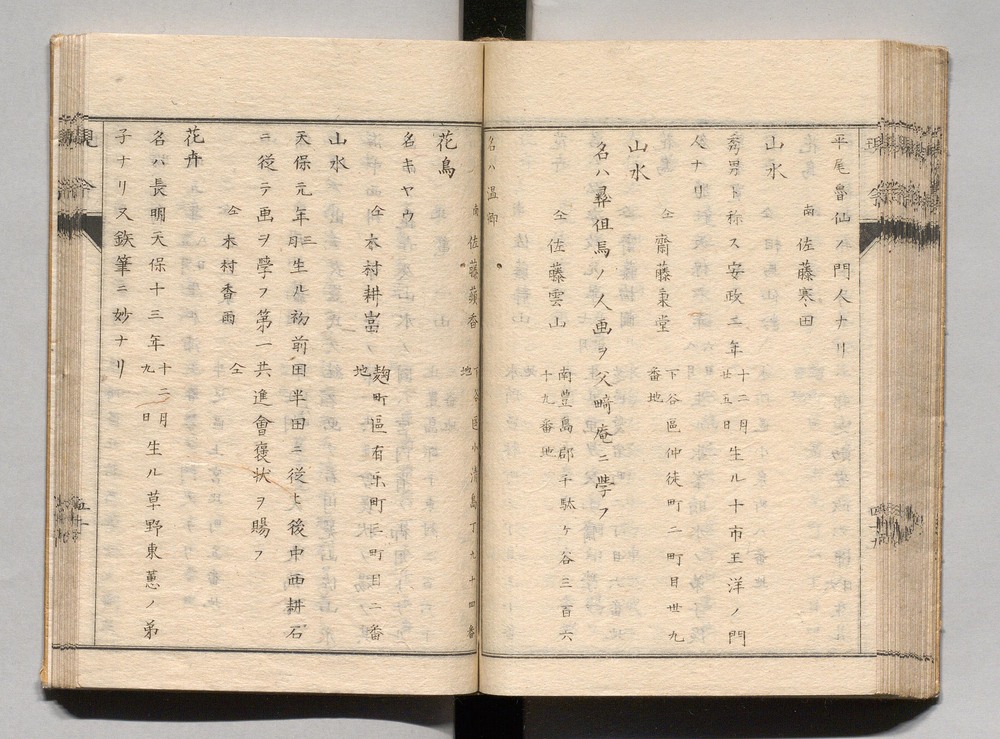 平尾魯仙ノ門人ナリ
南 佐藤寒田
山水
秀男ト称ス安政二年十二月廿五日生ル十市王洋ノ門
人ナリ
仝 齋藤東堂 下谷區仲徒町二町目卅九番地
山水
名ハ尋但馬ノ人画ヲ父畸庵ニ學フ
仝 佐藤雲山 南豊島郡千駄ヶ谷三百六十九番地
名ハ温卿
南 佐藤蘋香 下谷區小清島丁九十四番地
花鳥
名キヤウ
仝 木村耕嵓 麹町區有樂町三町目二番地
山水
天保元年三月生ル初前田半田ニ從ヒ後中西耕石
ニ從テ画ヲ學フ第一共進會褒状ヲ賜フ
仝 木村香雨 仝
花卉
名ハ長明天保十三年十二月九日生ル草野東蕙ノ弟
子ナリ又鉄筆ニ妙ナリ